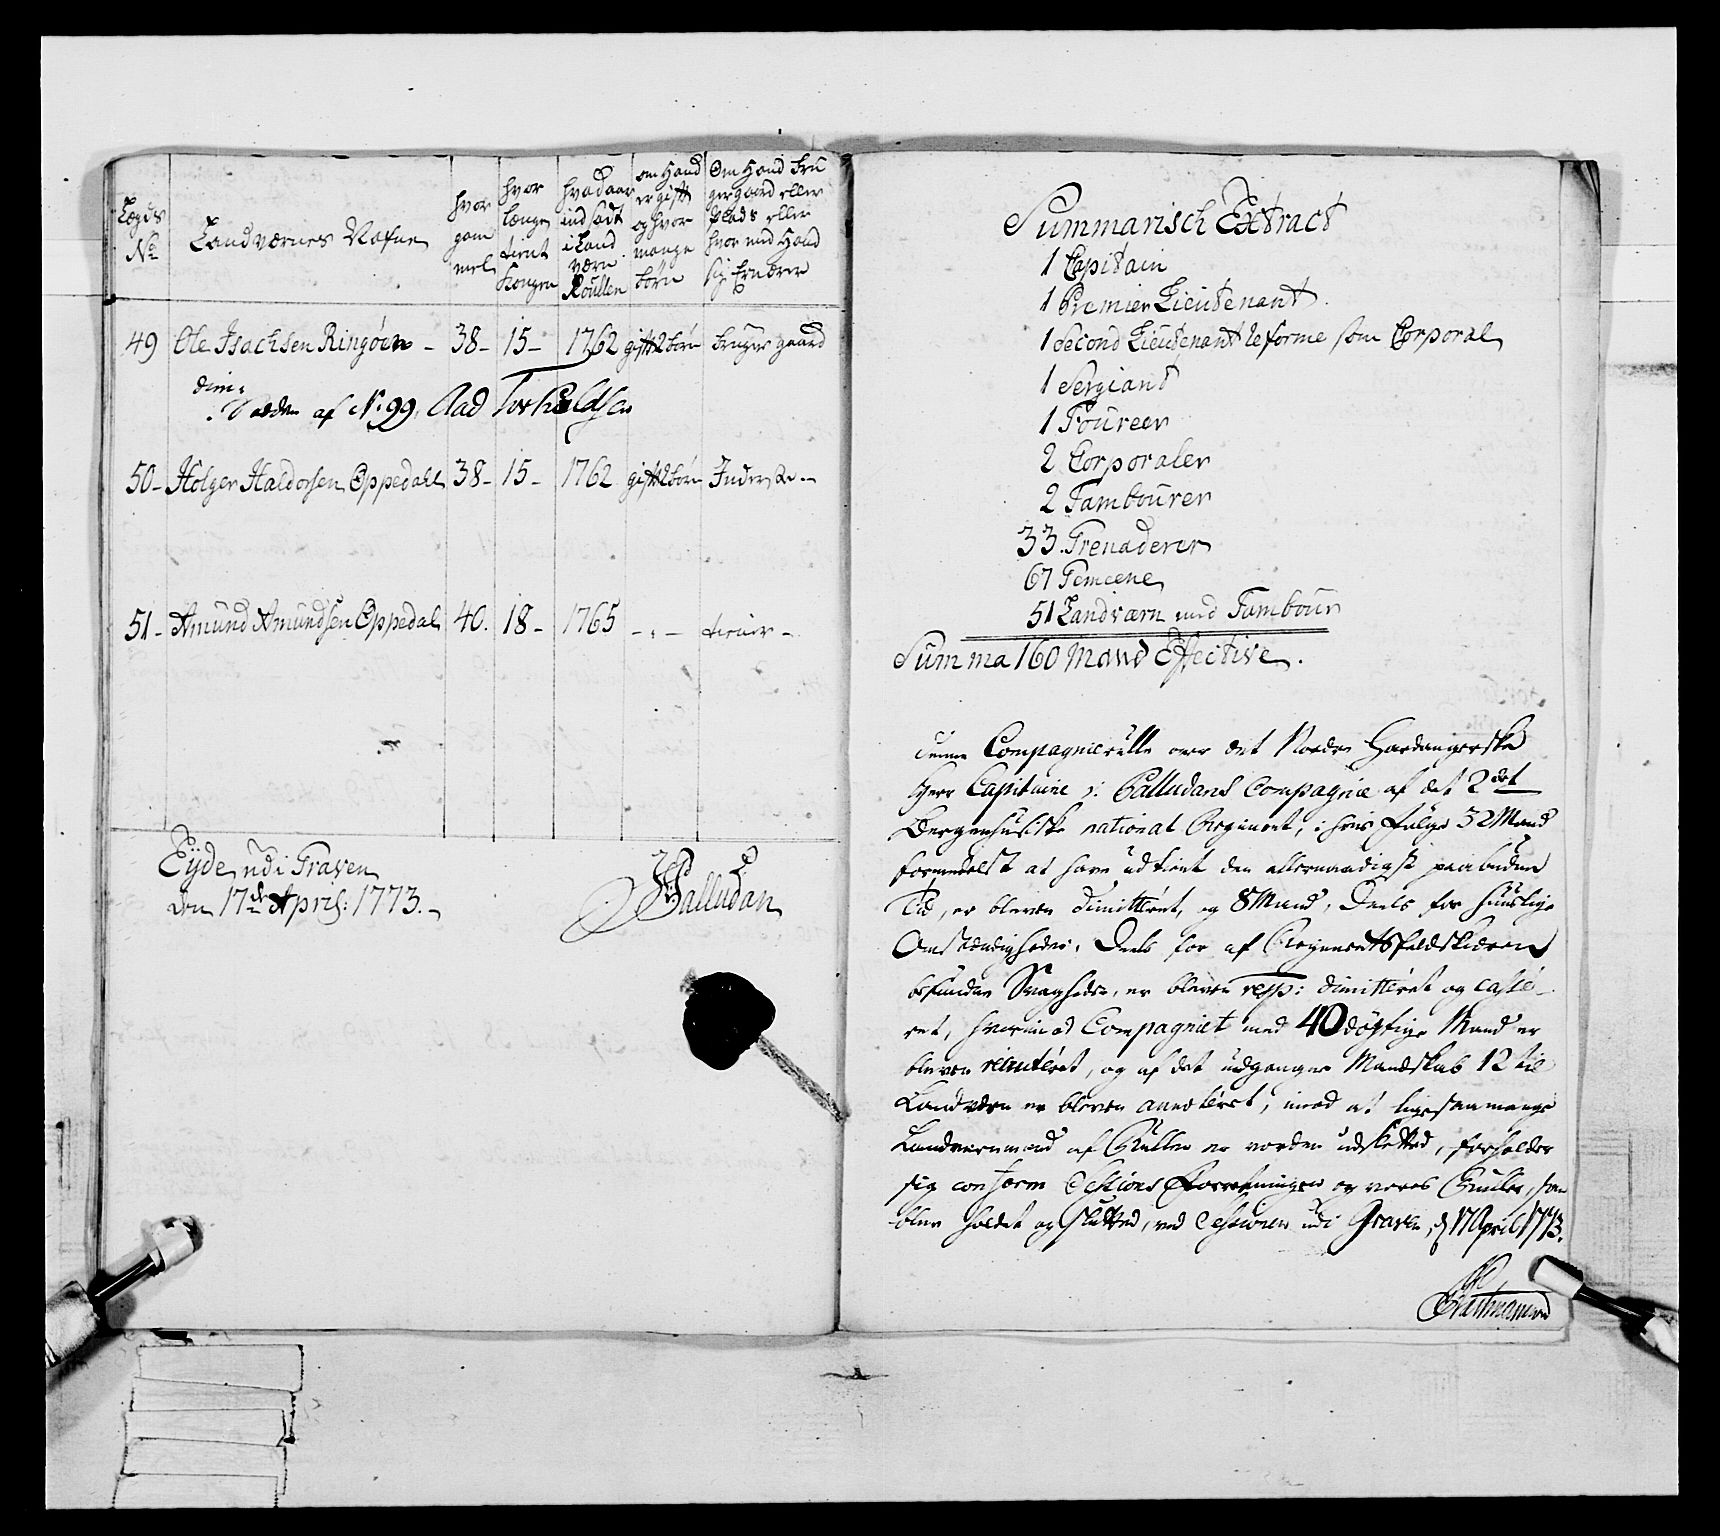 Lægds No
Landværnes Nafne
hvor gam mel
hvor længe tient Kongen
hvad aar indsadt i Land værn Roullen
om Hand er gift og hvor mange børn
Om Hand bru ger gaard eller Plads eller hvor med Hand sig Ernærer
49 Ole Isachsen Ringøen - 38 - 15 - 1762 gift 2 børn bruger gaard
dim:
Sædden af No 99, Aad Torkieldsen
50 - Holger Haldorsen Oppedahl 38 - 15 - 1762 gift 2 børn Inderste -
51 - Amund Amundsen Oppedal 40. 18 - 1765 - " - tiener -
Eyde udi Graven
den 17de April: 1773.
Palludan
Summarisch Extract
1 Capitain
1 Premier Lieutenant
1 Second Lieutenant reforme som Corporal
1 Sergiant
1 Foureer
2 Corporaler
2 Tambourer
33. Grenaderer
67 Gemeene
51 Landværn med Tambour
Summa 160 Mand Effective.
Denne Compagnie rulle over det Nordre Hardangerske
Herr Capitaine v: Palludans Compagnie af det 2det
Bergenhusiske national Regiment, i hvis følge 32 Mand
formedelst at have udtient den allernaadigst paabudne
Tid, er bleven dimitteret, og 8 Mand, Deels for huuslige
Omstændigheder, Deels for af Regimentsfeldskieren
befundne Svagheder, er bleven resp: dimitteret og casse-
ret, hvorimod Compagniet med 40 døgtige Mand er
bleven recruteret, og af det udgangne Mandskab 12 til
Landværn er bleven annoteret, imod at ligesaa mange
Landværnmænd af Rullen er worden udsletted, forholder
sig conform Sessions Forretningen og vores Ruller, som
blev holdet og sluttet, ved Sessionen udi Graven, d 17 April 1773.